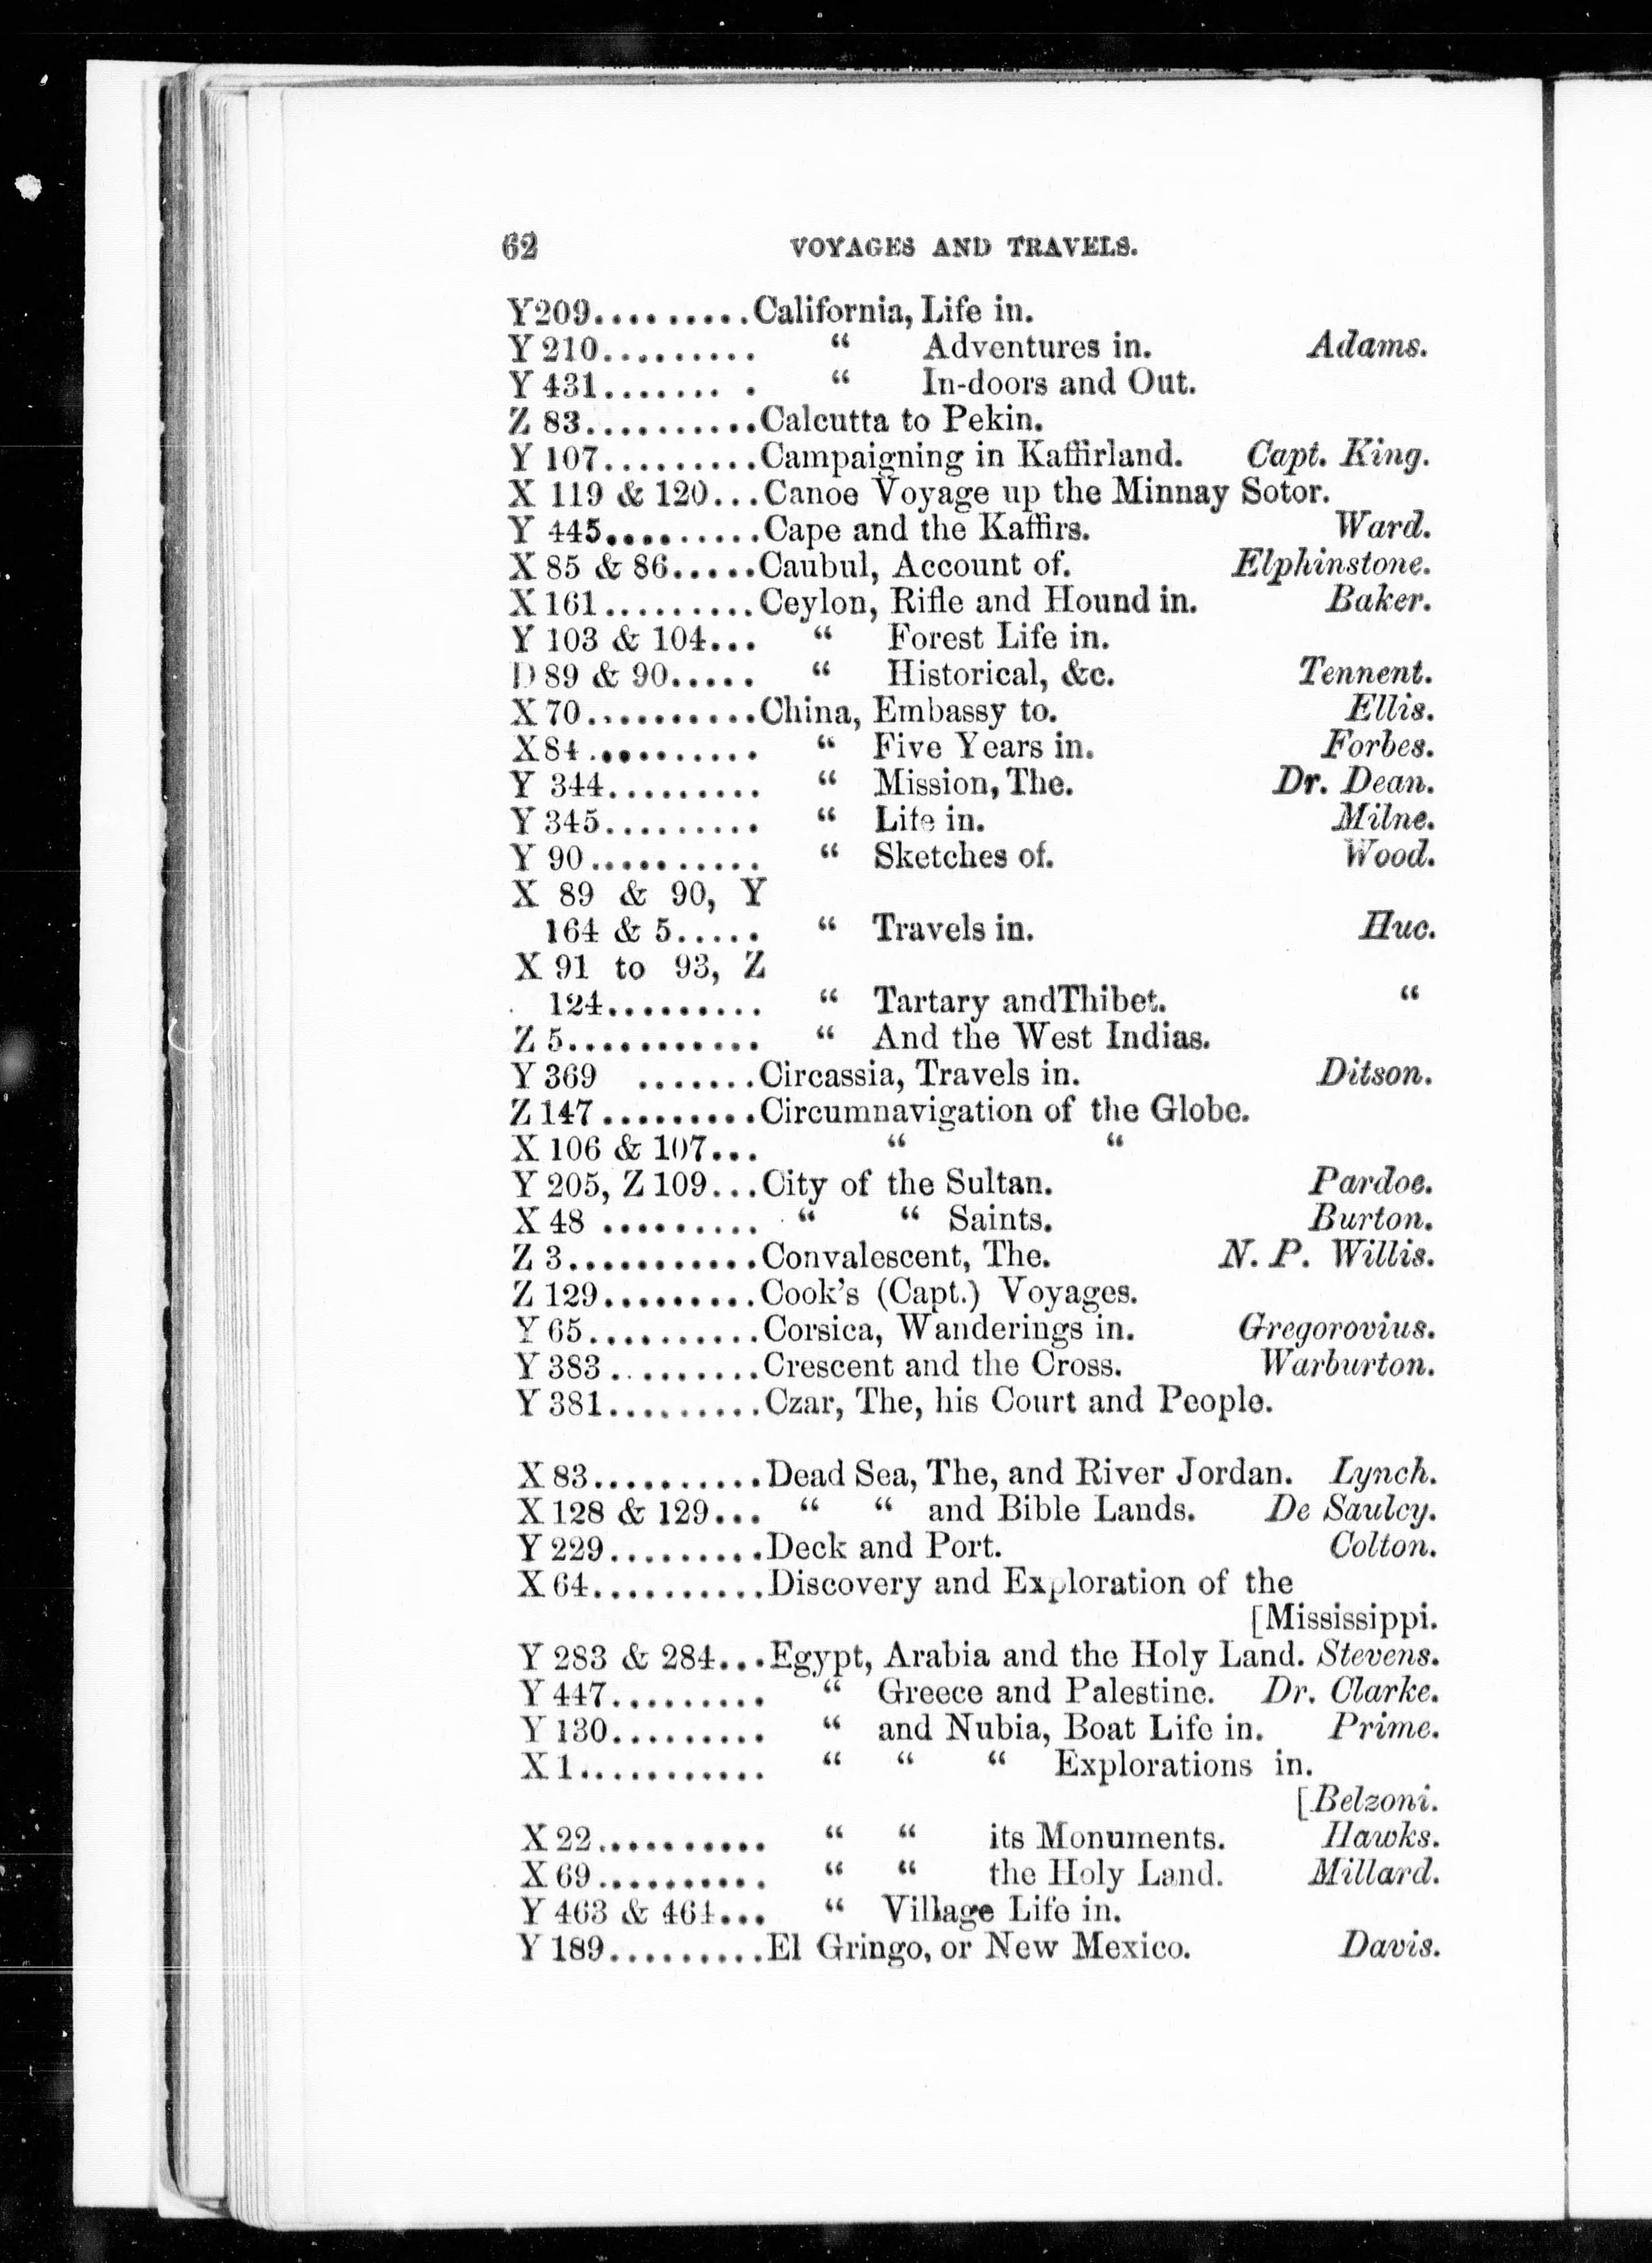 62 VOYAGES AND TRAVELS.
Y209.........California, Life in.
Y 210......... “ Adventures in. Adams.
Y 431....... . “ In-doors and Out.
Z 83..........Calcutta to Pekin.
Y 107.........Campaigning in Kaffirland. Capt. King.
X 119 & 120...Canoe Voyage up the Minnay Sotor.
Y 445.........Cape and the Kaffirs. Ward.
X 85 & 86.....Caubul, Account of. Elphinstone.
X 161.........Ceylon, Rifle and Hound in. Baker.
Y 103 & 104... “ Forest Life in.
D 89 & 90..... “ Historical, &c. Tennent.
X 70..........China, Embassy to. Ellis.
X84.......... “ Five Years in. Forbes.
Y 344......... “ Mission, The. Dr. Dean.
Y 345......... “ Life in. Milne.
Y 90.......... “ Sketches of. Wood.
X 89 & 90, Y
164 & 5..... “ Travels in. Huc.
X 91 to 93, Z
124......... “ Tartary andThibet. “
Z 5........... “ And the West Indias.
Y 369 .......Circassia, Travels in. Ditson.
Z 147.........Circumnavigation of the Globe.
X 106 & 107... “ “
Y 205, Z 109...City of the Sultan. Pardoe.
X 48 ......... “ “ Saints. Burton.
Z 3...........Convalescent, The. N. P. Willis.
Z 129.........Cook's (Capt.) Voyages.
Y 65..........Corsica, Wanderings in. Gregorovius.
Y 383.........Crescent and the Cross. Warburton.
Y 381.........Czar, The, his Court and People.
X 83..........Dead Sea, The, and River Jordan. Lynch.
X 128 & 129... “ “ and Bible Lands. De Saulcy.
Y 229.........Deck and Port. Colton.
X 64..........Discovery and Exploration of the
[Mississippi.
Y 283 & 284...Egypt, Arabia and the Holy Land. Stevens.
Y 447......... “ Greece and Palestine. Dr. Clarke.
Y 130......... “ and Nubia, Boat Life in. Prime.
X 1........... “ “ “ Explorations in.
[Belzoni.
X 22.......... “ “ its Monuments. Hawks.
X 69.......... “ “ the Holy Land. Millard.
Y 463 & 464... “ Village Life in.
Y 189.........El Gringo, or New Mexico. Davis.